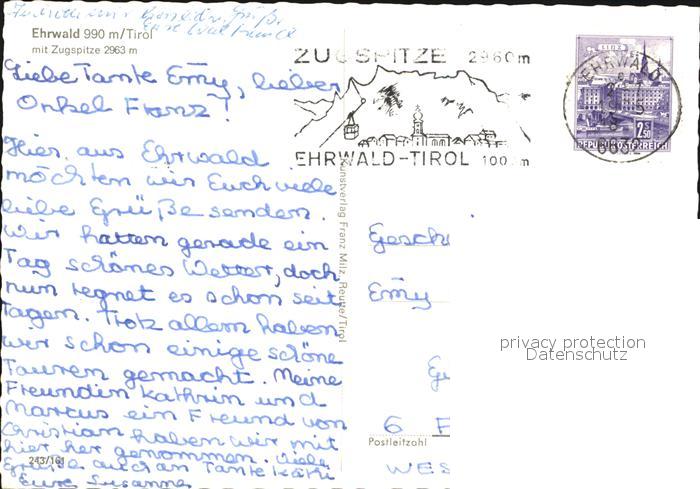 Ehrwald 990 m/Tirol
mit Zugspitze 2963 m
Liebe Tante Emy, lieber
Onkel Franz!
Hier aus Ehrwald
möchten wir Euch viele
liebe Grüße senden.
Wir hatten gerade ein
Tag schönes Wetter, doch
nun regnet es schon seit
Tagen. Trotz allem haben
wir schon einige schöne
Touren gemacht. Meine
Freundin Kathrin und
Marcus ein Freund von
Christian haben wir mit
hier her genommen. Viele
Grüße auch an Tante Käthi
Eure Susanne
243/161
Kunstverlag Franz Milz, Reutte/Tirol
ZUGSPITZE 2960m
EHRWALD-TIROL 100 m
LINZ
2.50
REPUBLIK ÖSTERREICH
EHRWALD
6632
Gesch
Emy
6 F
Postleitzahl
WES
privacy protection
Datenschutz